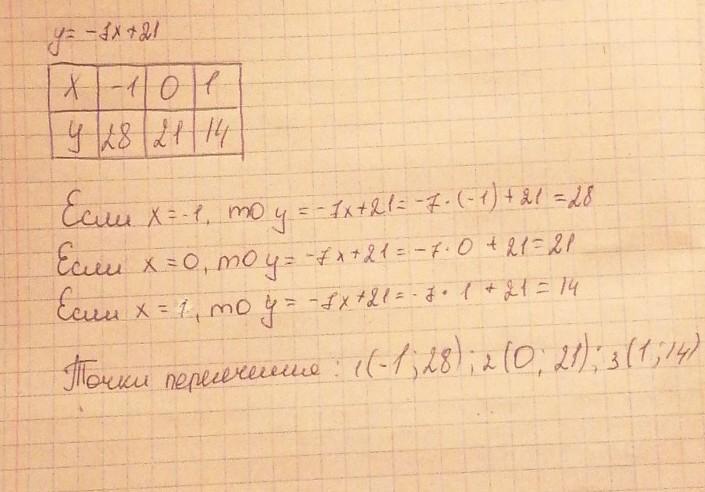 y = -7x+21
x -1 0 1
y 28 21 14
Если x = -1, то y = -7x+21 = -7·(-1)+21 = 28
Если x = 0, то y = -7x+21 = -7·0 + 21 = 21
Если x = 1, то y = -7x+21 = -7·1 + 21 = 14
Точки пересечения: 1(-1; 28); 2(0; 21); 3(1; 14)